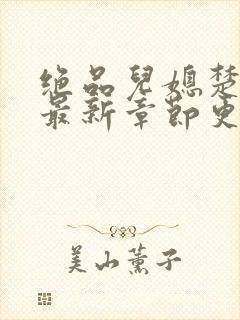 绝品儿媳楚
最新章节更
美山薰子